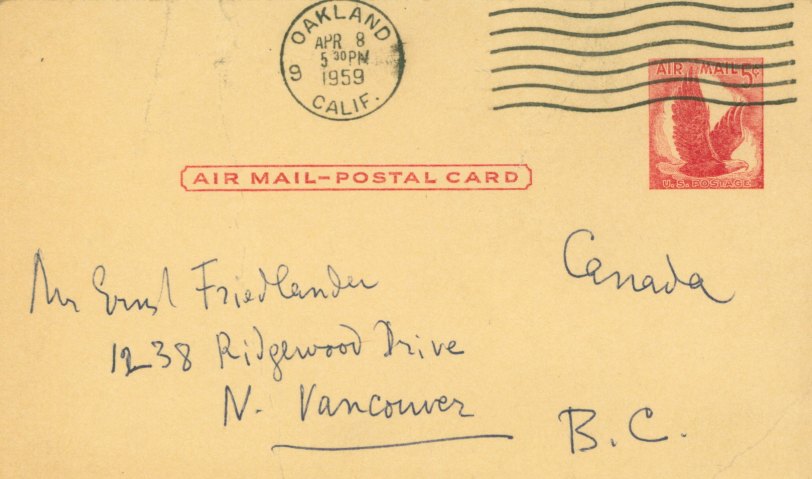 OAKLAND
APR 8
5 30 PM
1959
9
CALIF.
AIR MAIL 5¢
U.S. POSTAGE
AIR MAIL-POSTAL CARD
Mr Ernst Friedlander
Canada
1238 Ridgewood Drive
N. Vancouver
B.C.